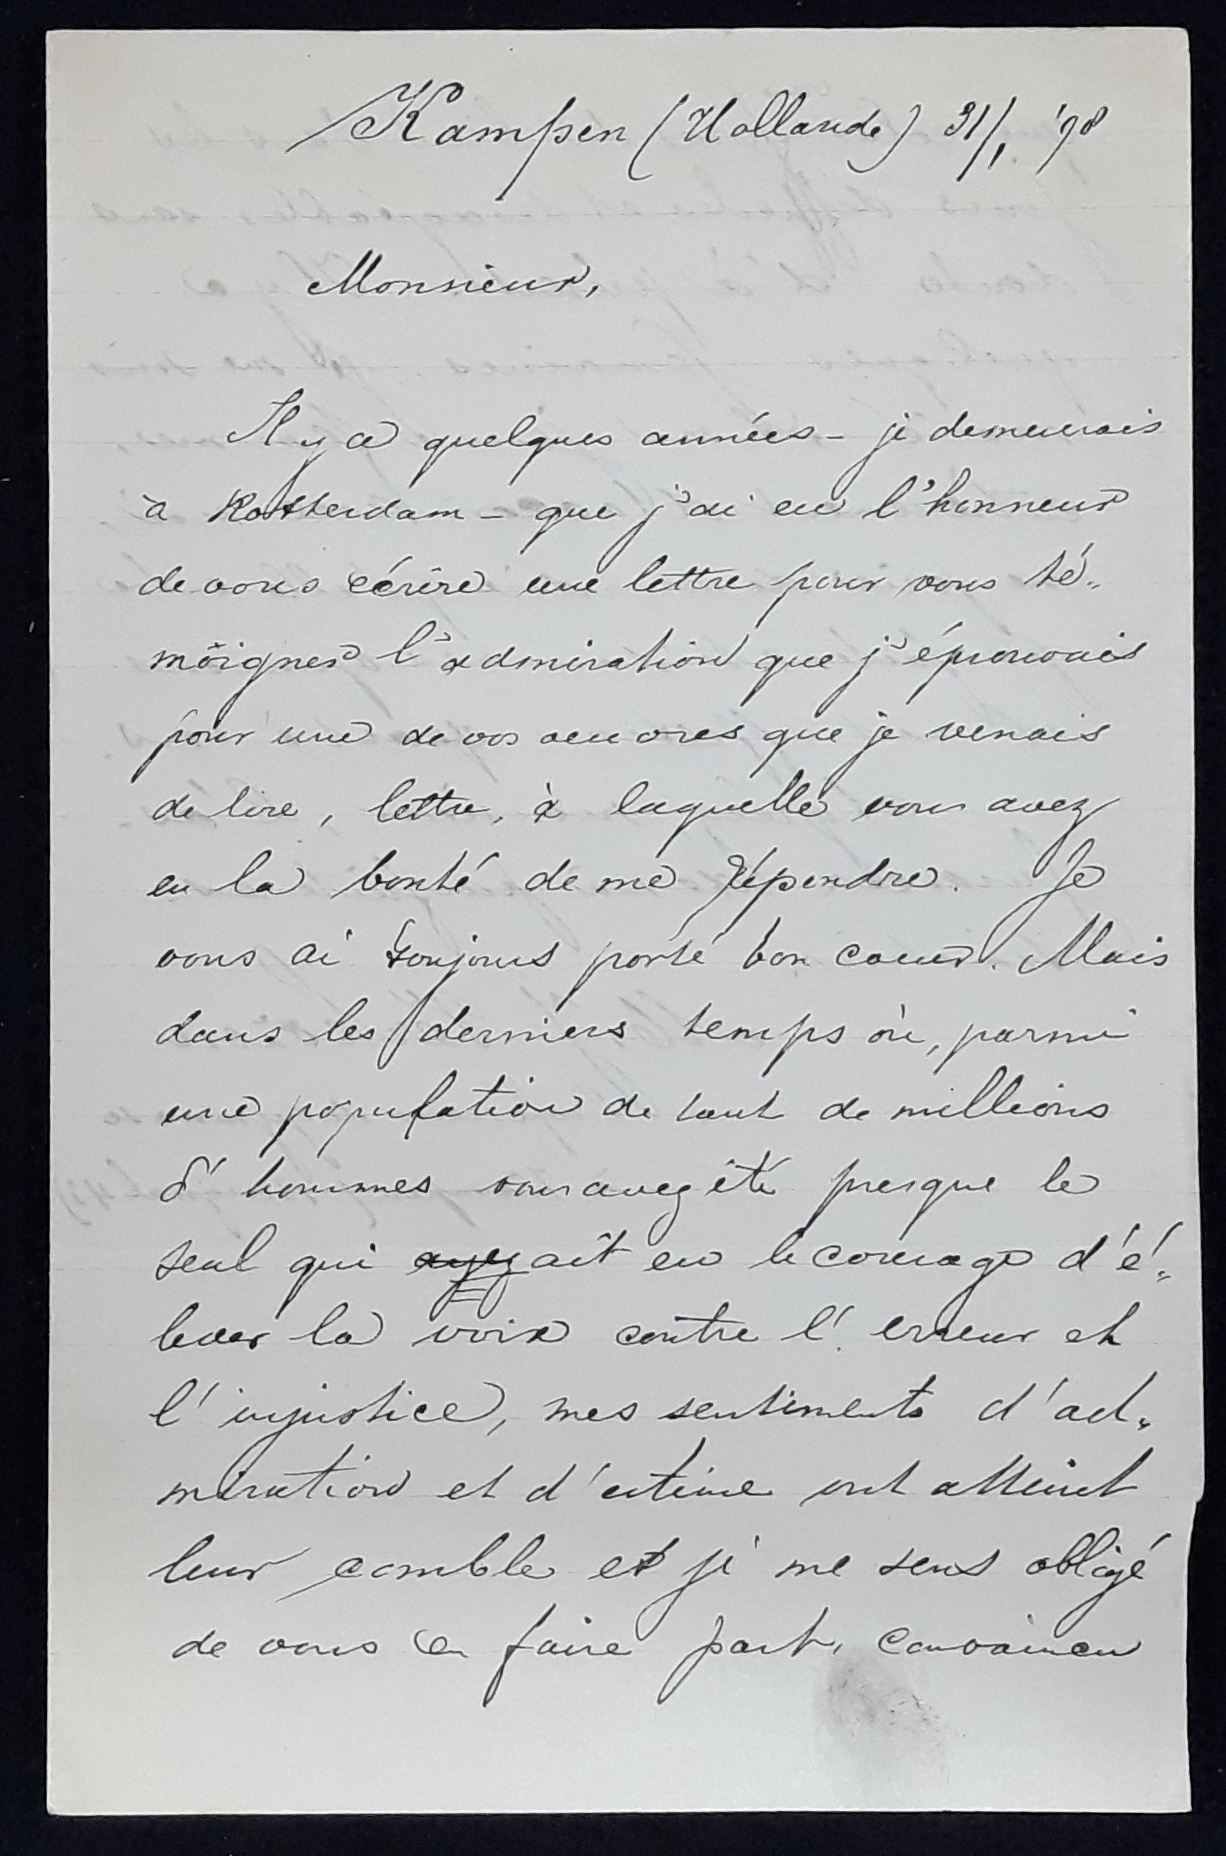 Kampen (Hollande) 31/1 '98
Monsieur,
Il y a quelques années – je demeurais
à Rotterdam – que j'ai eu l'honneur
de vous écrire une lettre pour vous té-
moigner l'admiration que j'éprouvais
pour une de vos oeuvres que je venais
de lire, lettre, à laquelle vous avez
eu la bonté de me répondre. Je
vous ai toujours porté bon coeur. Mais
dans les derniers temps où, parmi
une population de tant de millions
d'hommes vous avez été presque le
seul qui ayez ait eu le courage d'é-
lever la voix contre l'erreur et
l'injustice, mes sentiments d'ad-
miration et d'estime ont atteint
leur comble et je me sens obligé
de vous en faire part, convaincu